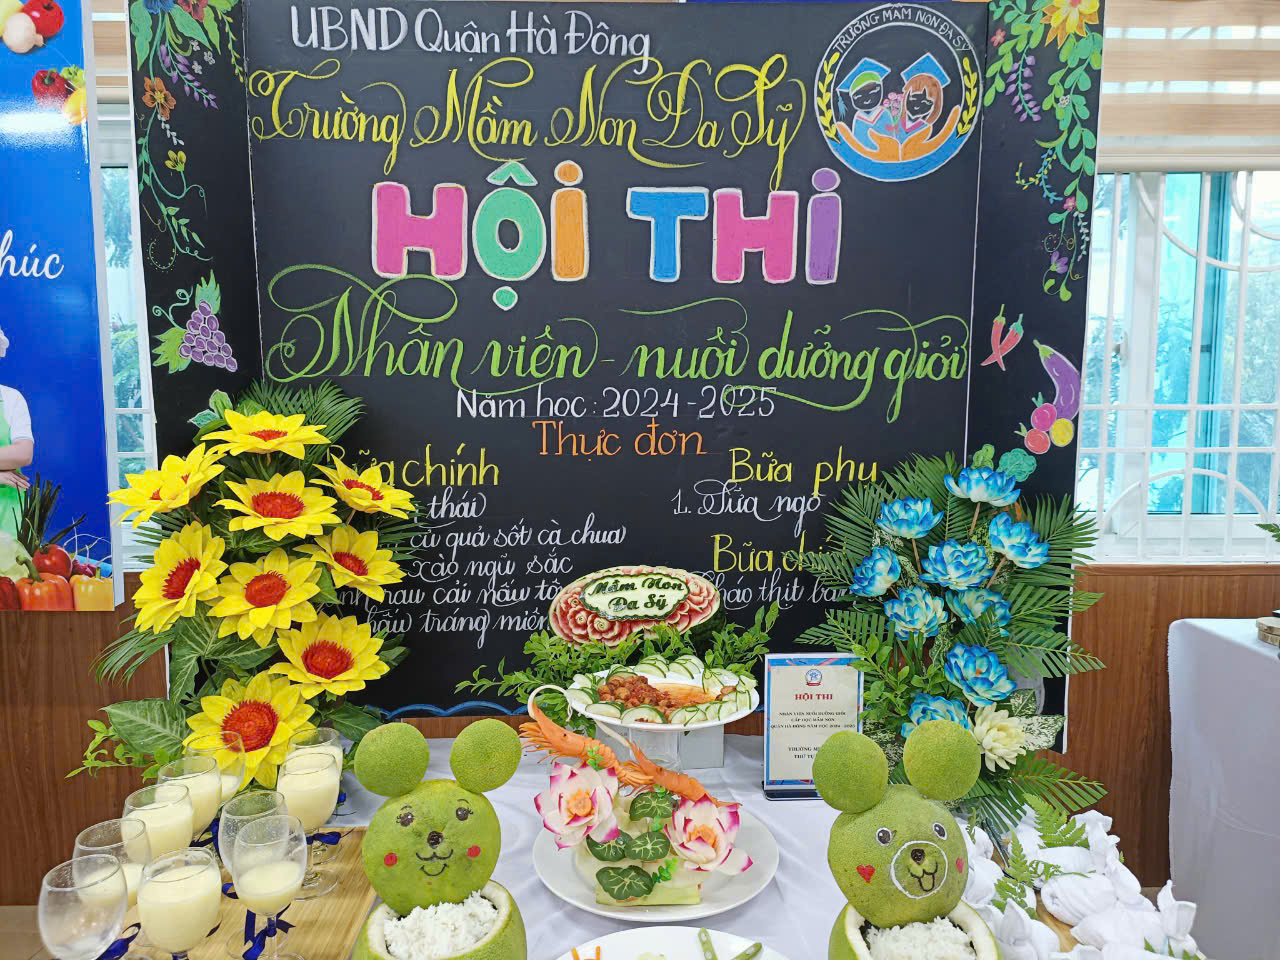 UBND Quận Hà Đông
Trường Mầm Non Đa Sỹ
TRƯỜNG MẦM NON ĐA SỸ
HỘI THi
Nhân viên - nuôi dưỡng giỏi
Năm học: 2024-2025
Thực đơn
Bữa chính
thái
củ quả sốt cà chua
xào ngũ sắc
canh rau cải nấu tôm
tráng miệng
Bữa phụ
1. Sữa ngô
Bữa chính
cháo thịt
Mầm Non
Đa Sỹ
HỘI THI
NHÂN VIÊN NUÔI DƯỠNG GIỎI
CẤP HỌC MẦM NON
QUẬN HÀ ĐÔNG NĂM HỌC 2024 - 2025
TRƯỜNG
THỨ TỰ
húc